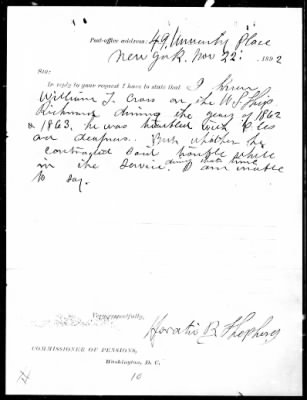 Post-office address: 49 University Place
New York. Nov 22: 1892
Sir:
In reply to your request I have to state that I knew
William T. Cross on the U S Ship
Richmond during the years of 1862
& 1863. he was troubled with Piles
and deafness. But whether he
contracted said trouble while
in the Service during that time I am unable
to say.
Very respectfully,
Horatio B. Shepherd
COMMISSIONER OF PENSIONS,
Washington, D. C.
10